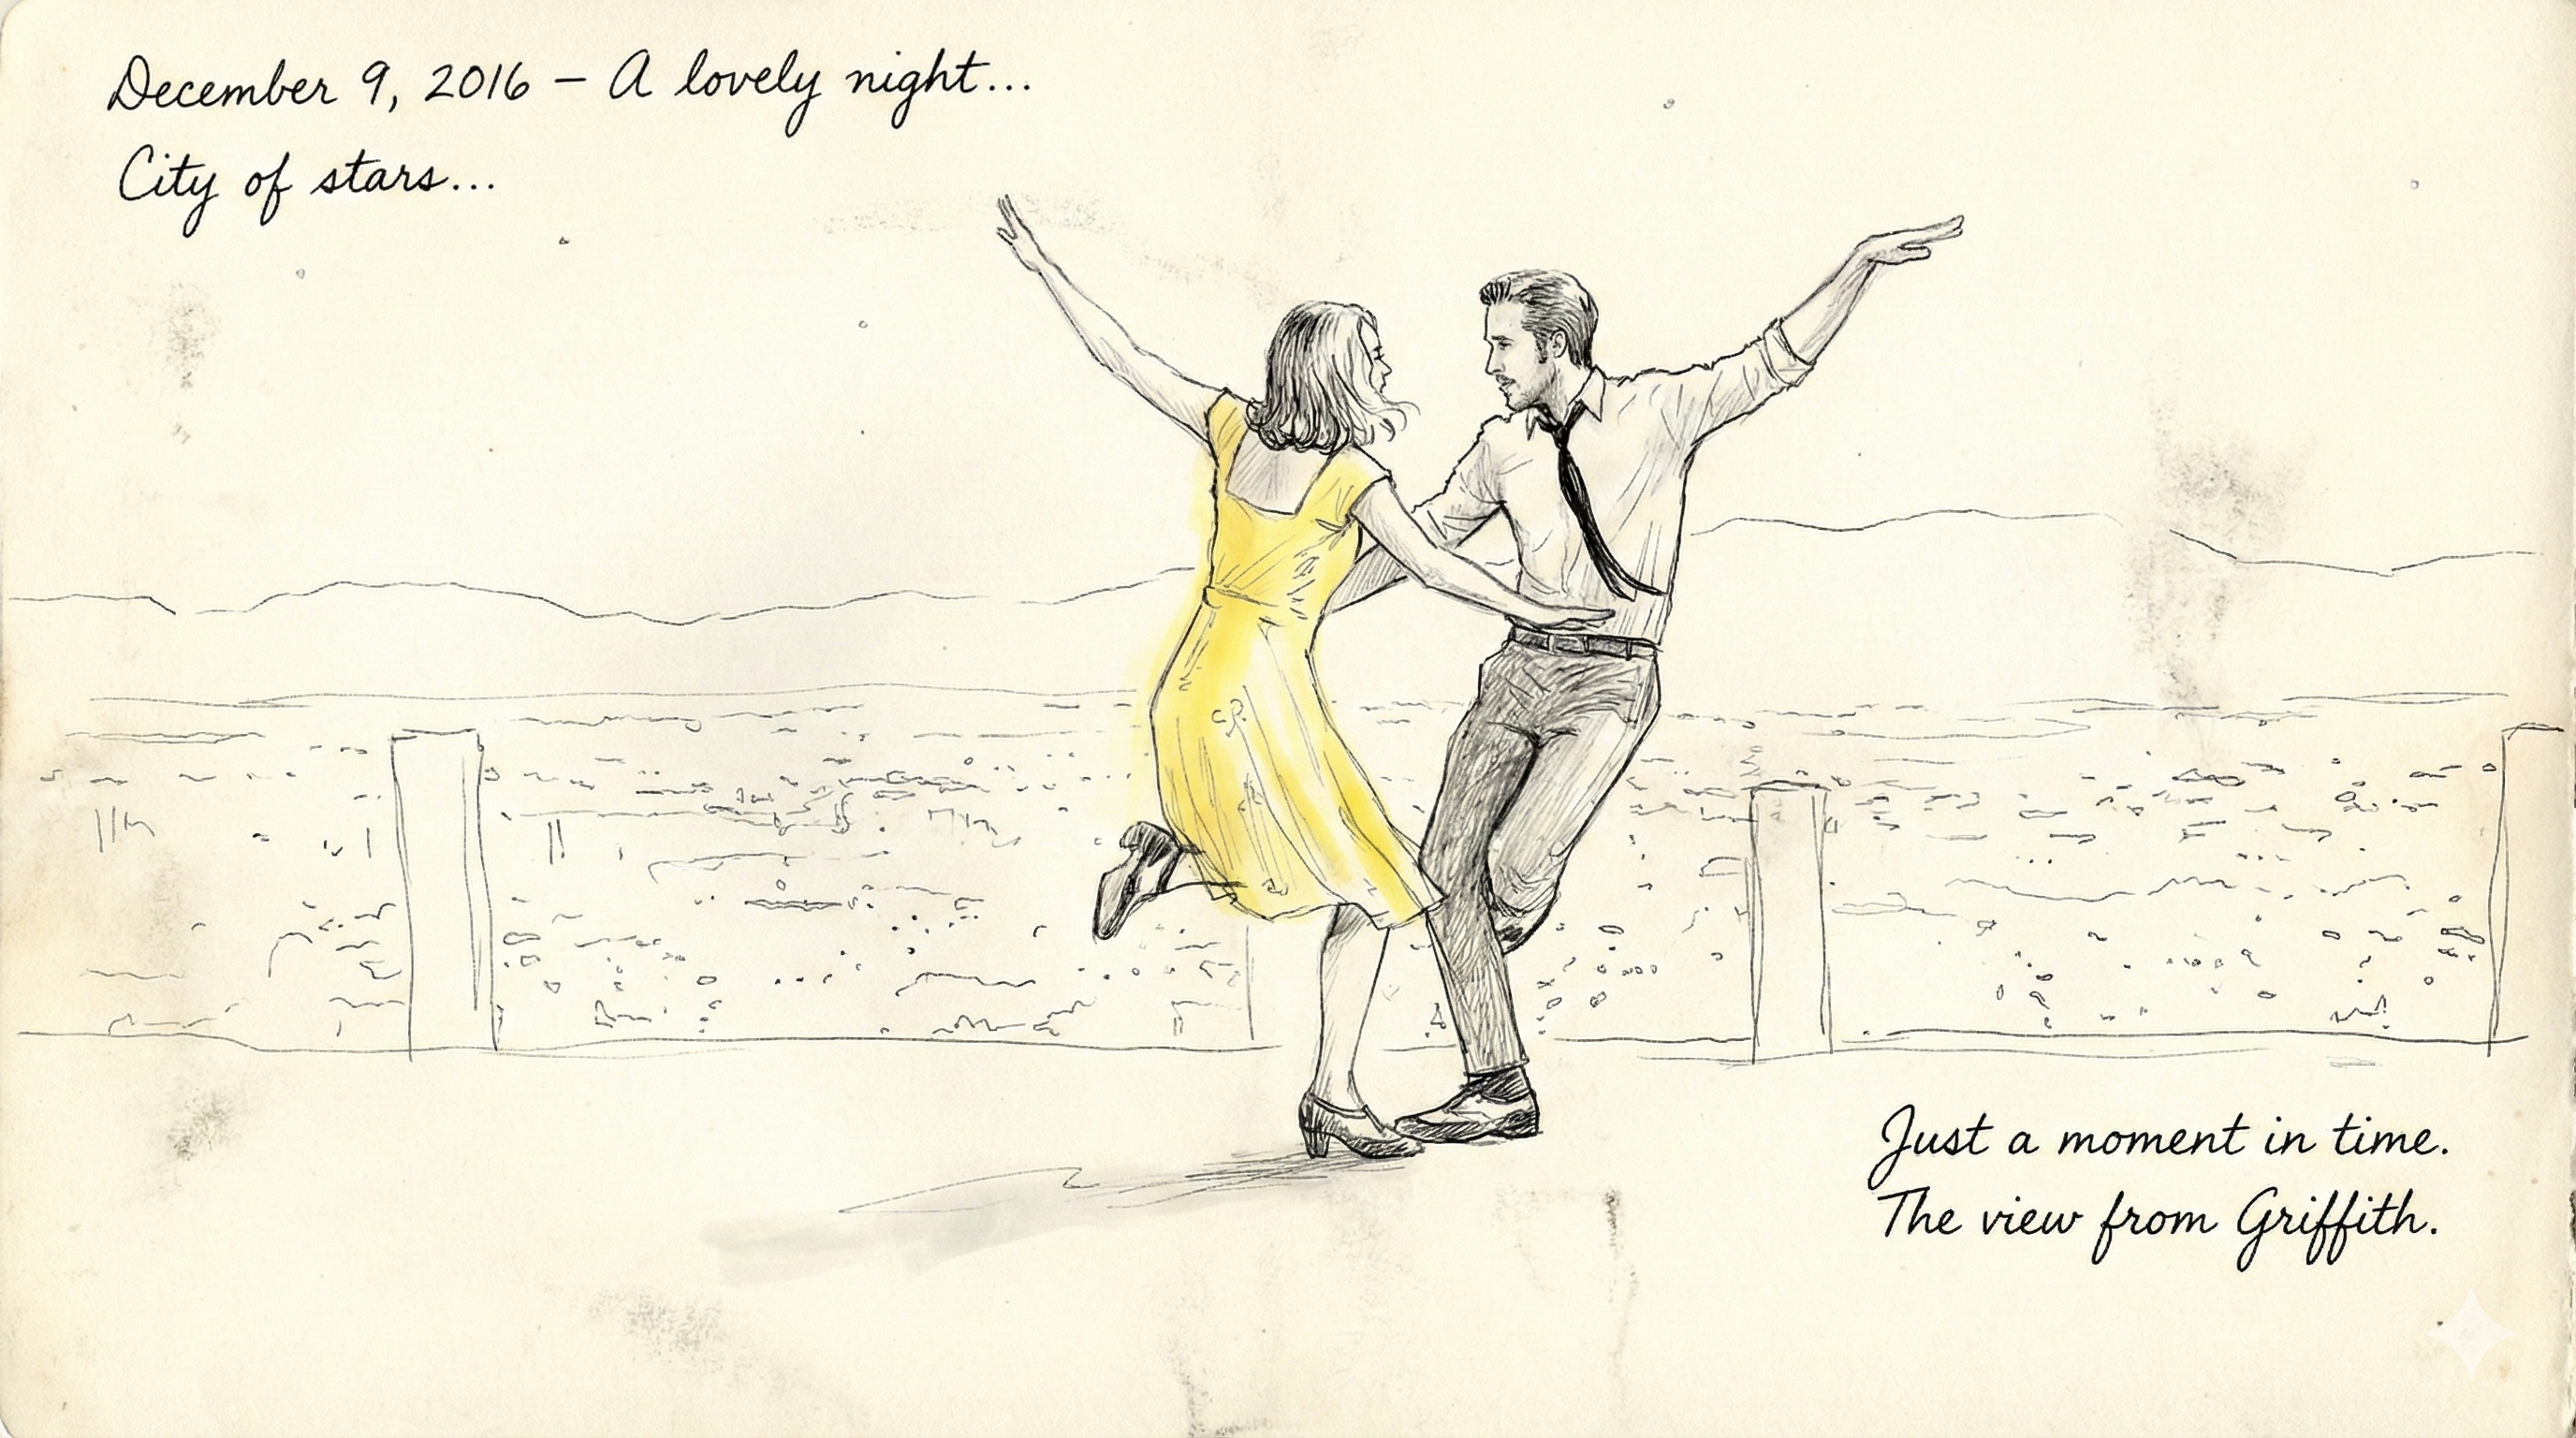 December 9, 2016 – A lovely night...
City of stars...
Just a moment in time.
The view from Griffith.